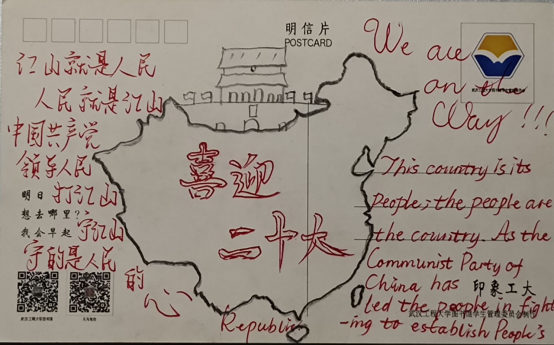 明信片
POSTCARD
江山就是人民
人民就是江山
中国共产党
领导人民
打江山
守江山
守的是人民
的
心
明日
想去哪里?
我会早起
喜迎
二十大
We are
on the
Way!!!
This country is its
People; the people are
the country. As the
Communist Party of
China has
led the people in fight
-ing to establish People's
Republic
印象工大
武汉工程大学图书馆学生管理委员会制
武汉工程大学图书馆